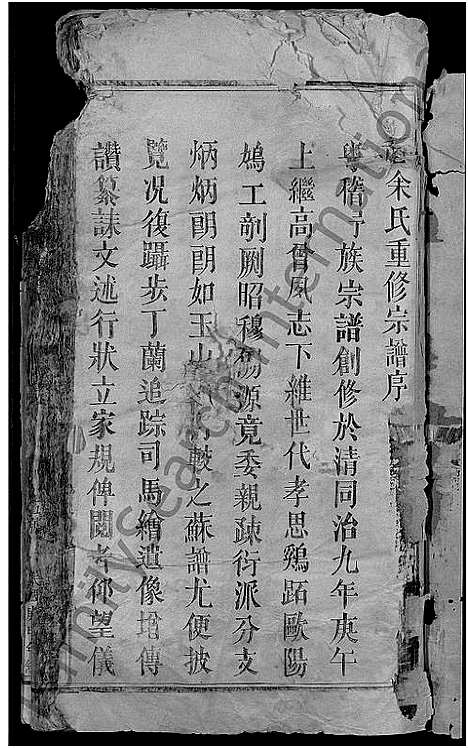 余氏重修宗譜序
粵稽予族宗譜創修於清同治九年庚午
上繼高曾夙志下維世代孝思鷄跖歐陽
鳩工剞劂昭穆溯源竟委親疎衍派分支
炳炳朗朗如玉山較之蘇譜尤便披
覽况復躡步丁蘭追踪司馬繪遺像增傳
讚纂誄文述行狀立家規俾閱者仰望儀
FamilySearch International